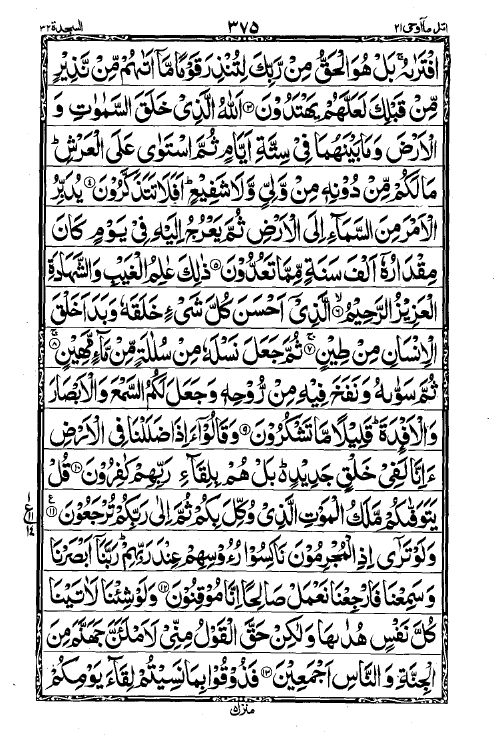 اتل ما اوحی ۲۱ ۳۷۵ السجدة ۳۲
افْتَرٰىهُ ۚ بَلْ هُوَ الْحَقُّ مِنْ رَّبِّكَ لِتُنْذِرَ قَوْمًا مَّاۤ اَتٰىهُمْ مِّنْ نَّذِیْرٍ
مِّنْ قَبْلِكَ لَعَلَّهُمْ یَهْتَدُوْنَ ۝۳ اَللّٰهُ الَّذِیْ خَلَقَ السَّمٰوٰتِ وَ
الْاَرْضَ وَمَا بَیْنَهُمَا فِیْ سِتَّةِ اَیَّامٍ ثُمَّ اسْتَوٰی عَلَی الْعَرْشِ ؕ
مَا لَكُمْ مِّنْ دُوْنِهٖ مِنْ وَّلِیٍّ وَّلَا شَفِیْعٍ ؕ اَفَلَا تَتَذَكَّرُوْنَ ۝۴ یُدَبِّرُ
الْاَمْرَ مِنَ السَّمَآءِ اِلَی الْاَرْضِ ثُمَّ یَعْرُجُ اِلَیْهِ فِیْ یَوْمٍ كَانَ
مِقْدَارُهٗۤ اَلْفَ سَنَةٍ مِّمَّا تَعُدُّوْنَ ۝۵ ذٰلِكَ عٰلِمُ الْغَیْبِ وَالشَّهَادَةِ
الْعَزِیْزُ الرَّحِیْمُ ۝۶ ۙ الَّذِیْۤ اَحْسَنَ كُلَّ شَیْءٍ خَلَقَهٗ وَبَدَاَ خَلْقَ
الْاِنْسَانِ مِنْ طِیْنٍ ۝۷ ۚ ثُمَّ جَعَلَ نَسْلَهٗ مِنْ سُلٰلَةٍ مِّنْ مَّآءٍ مَّهِیْنٍ ۝۸ ۚ
ثُمَّ سَوّٰىهُ وَنَفَخَ فِیْهِ مِنْ رُّوْحِهٖ وَجَعَلَ لَكُمُ السَّمْعَ وَالْاَبْصَارَ
وَالْاَفْـِٕدَةَ ؕ قَلِیْلًا مَّا تَشْكُرُوْنَ ۝۹ وَقَالُوْۤا ءَاِذَا ضَلَلْنَا فِی الْاَرْضِ
ءَاِنَّا لَفِیْ خَلْقٍ جَدِیْدٍ ؕ۬ بَلْ هُمْ بِلِقَآءِ رَبِّهِمْ كٰفِرُوْنَ ۝۱۰ قُلْ
یَتَوَفّٰىكُمْ مَّلَكُ الْمَوْتِ الَّذِیْ وُكِّلَ بِكُمْ ثُمَّ اِلٰی رَبِّكُمْ تُرْجَعُوْنَ ۝۱۱ ع
۱ ع ۱۱ ۱۴
وَلَوْ تَرٰۤی اِذِ الْمُجْرِمُوْنَ نَاكِسُوْا رُءُوْسِهِمْ عِنْدَ رَبِّهِمْ ؕ رَبَّنَاۤ اَبْصَرْنَا
وَسَمِعْنَا فَارْجِعْنَا نَعْمَلْ صَالِحًا اِنَّا مُوْقِنُوْنَ ۝۱۲ وَلَوْ شِئْنَا لَاٰتَیْنَا
كُلَّ نَفْسٍ هُدٰىهَا وَلٰكِنْ حَقَّ الْقَوْلُ مِنِّیْ لَاَمْلَـَٔنَّ جَهَنَّمَ مِنَ
الْجِنَّةِ وَالنَّاسِ اَجْمَعِیْنَ ۝۱۳ فَذُوْقُوْا بِمَا نَسِیْتُمْ لِقَآءَ یَوْمِكُمْ
منزل